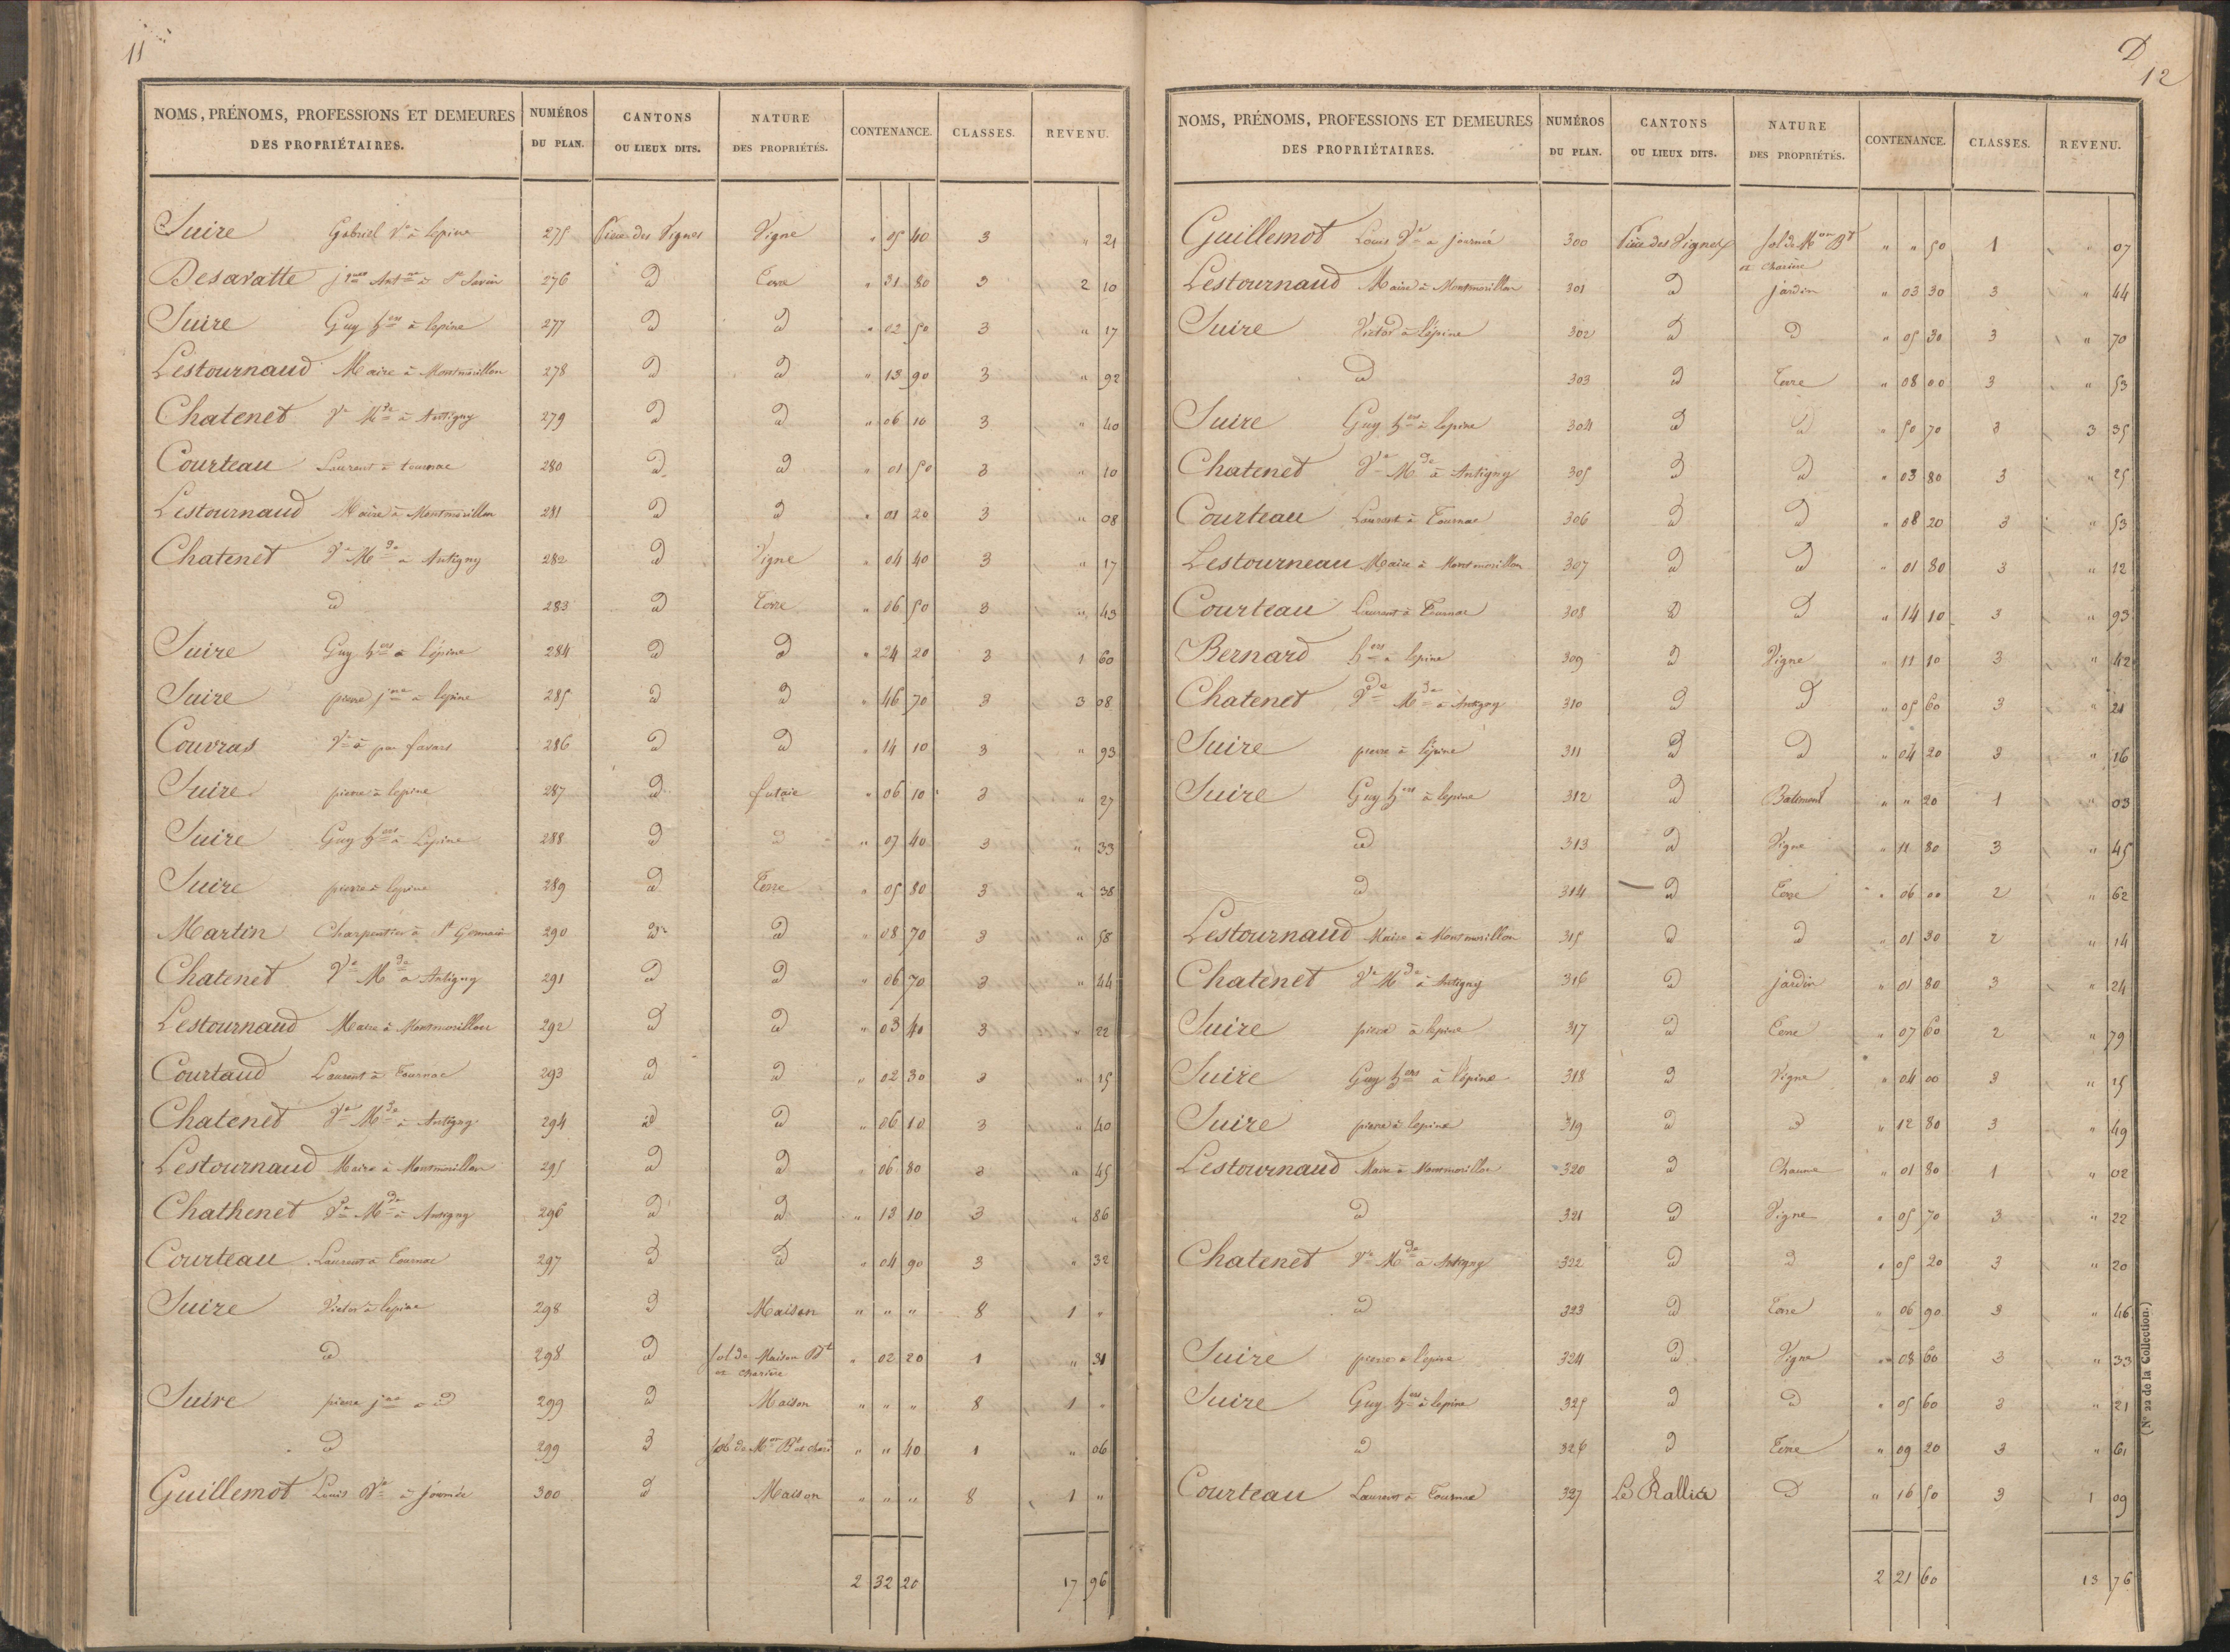 11
NOMS, PRÉNOMS, PROFESSIONS ET DEMEURES DES PROPRIÉTAIRES. NUMÉROS DU PLAN. CANTONS OU LIEUX DITS. NATURE DES PROPRIÉTÉS. CONTENANCE. CLASSES. REVENU.
Suire Gabriel Ve à lepine 275 Pièce des Vignes Vigne " 05 40 3 " 21
Desavatte jques Antne à St Savin 276 d Terre " 31 80 3 2 10
Suire Guy hers à lepine 277 d d " 02 50 3 " 17
Lestournaud Maire à Montmorillon 278 d d " 13 90 3 " 92
Chatenet Ve Mde à Antigny 279 d d " 06 10 3 " 40
Courteau Laurent à tournac 280 d d " 01 50 3 " 10
Lestournaud Maire à Montmorillon 281 d d " 01 20 3 " 08
Chatenet Ve Mde à Antigny 282 d Vigne " 04 40 3 " 17
d 283 d Terre " 06 50 3 " 43
Suire Guy hers à lépine 284 d d " 24 20 3 1 60
Suire pierre jne à lepine 285 d d " 46 70 3 3 08
Couvras Ve à favard 286 d d " 14 10 3 " 93
Suire pierre à lepine 287 d futaie " 06 10 3 " 27
Suire Guy hers à Lépine 288 d d " 07 40 3 " 33
Suire pierre à lepine 289 d Terre " 05 80 3 " 38
Martin Charpentier à St Germain 290 d d " 08 70 3 " 58
Chatenet Ve Mde à Antigny 291 d d " 06 70 3 " 44
Lestournaud Maire à Montmorillon 292 d d " 03 40 3 " 22
Courtaud Laurent à Tournac 293 d d " 02 30 3 " 15
Chatenet Ve Mde à Antigny 294 d d " 06 10 3 " 40
Lestournaud Maire à Montmorillon 295 d d " 06 80 3 " 45
Chathenet Ve Mde à Antigny 296 d d " 13 10 3 " 86
Courteau Laurent à Tournac 297 d d " 04 90 3 " 32
Suire Victor à lepine 298 d Maison " " " 8 1 "
d 298 d sol de Maison Bt et charière " 02 20 1 " 31
Suire pierre jne à d 299 d Maison " " " 8 1 "
d 299 d sol de Mon Bt et char " " 40 1 " 06
Guillemot Louis Ve à journée 300 d Maison " " " 8 1 "
2 32 20 17 96
D
12
NOMS, PRÉNOMS, PROFESSIONS ET DEMEURES DES PROPRIÉTAIRES. NUMÉROS DU PLAN. CANTONS OU LIEUX DITS. NATURE DES PROPRIÉTÉS. CONTENANCE. CLASSES. REVENU.
Guillemot Louis Ve à journée 300 Pièce des Vignes sol de Mon Bt et charière " " 50 1 " 07
Lestournaud Maire à Montmorillon 301 d jardin " 03 30 3 " 44
Suire Victor à lépine 302 d d " 05 30 3 " 70
d 303 d Terre " 08 00 3 " 53
Suire Guy hers à lepine 304 d d " 50 70 3 3 35
Chatenet Ve Mde à Antigny 305 d d " 03 80 3 " 25
Courteau Laurent à Tournac 306 d d " 08 20 3 " 53
Lestourneau Maire à Montmorillon 307 d d " 01 80 3 " 12
Courteau Laurent à Tournac 308 d d " 14 10 3 " 93
Bernard hers à lepine 309 d Vigne " 11 10 3 " 42
Chatenet Vde Mde à Antigny 310 d d " 05 60 3 " 21
Suire pierre à lépine 311 d d " 04 20 3 " 16
Suire Guy hers à lepine 312 d Batiment " " 20 1 " 03
d 313 d Vigne " 11 80 3 " 45
d 314 d Terre " 06 00 2 " 62
Lestournaud Maire à Montmorillon 315 d d " 01 30 2 " 14
Chatenet Ve Mde à Antigny 316 d jardin " 01 80 3 " 24
Suire pierre à lepine 317 d Terre " 07 60 2 " 79
Suire Guy hers à l'épine 318 d Vigne " 04 00 3 " 15
Suire pierre à lepine 319 d d " 12 80 3 " 49
Lestournaud Maire à Montmorillon 320 d Chaume " 01 80 1 " 02
d 321 d Vigne " 05 70 3 " 22
Chatenet Ve Mde à Antigny 322 d d " 05 20 3 " 20
d 323 d Terre " 06 90 3 " 46
Suire pierre à lepine 324 d Vigne " 08 60 3 " 33
Suire Guy hers à lepine 325 d d " 05 60 3 " 21
d 326 d Terre " 09 20 3 " 61
Courteau Laurent à Tournac 327 Le Rallia d " 16 50 3 1 09
2 21 60 13 76
(No 22 de la Collection.)